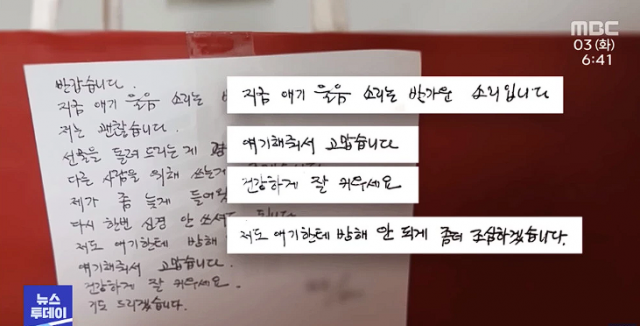 MBC
03 (화)
6:41
반갑습니다.
지금 애기 울음 소리는
저는 괜찮습니다.
선물을 돌려 드리는 게
다른 사람을 위해 쓰는게
제가 좀 늦게
다시 한번 신경 안 쓰셔도 됩니다
저도 애기한테 방해
얘기해줘서 고맙습니다.
건강하게 잘 키우세요.
기도 드리겠습니다.
지금 애기 울음 소리는 반가운 소리입니다
얘기해줘서 고맙습니다
건강하게 잘 키우세요
저도 애기한테 방해 안 되게 좀더 조심하겠습니다.
뉴스
투데이